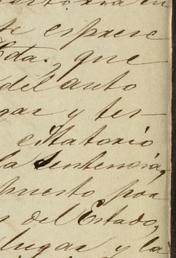 se esprese
Cda. que
del auto
gar y ter-
citatorio
la Sentencia,
puesto por
del Estado,
lugar y la